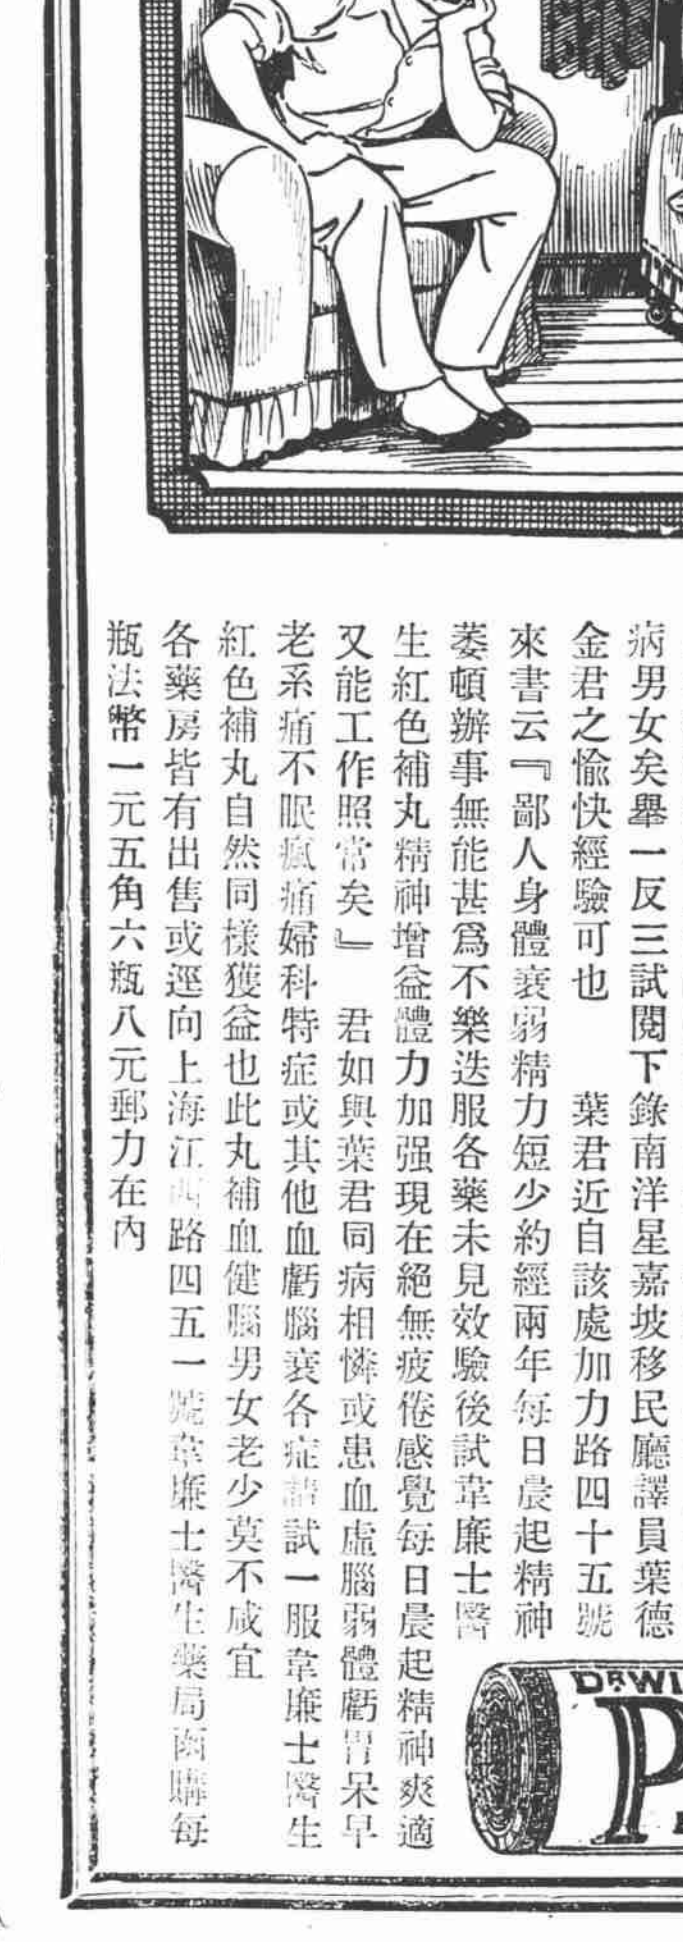 病男女矣舉一反三試閱下錄南洋星嘉坡移民廳譯員葉德
金君之愉快經驗可也　葉君近自該處加力路四十五號
來書云『鄙人身體衰弱精力短少約經兩年每日晨起精神
萎頓辦事無能甚爲不樂迭服各藥未見效驗後試韋廉士醫
生紅色補丸精神增益體力加强現在絕無疲倦感覺每日晨起精神爽適
又能工作照常矣』　君如與葉君同病相憐或患血虛腦弱體虧胃呆早
老系痛不眠瘋痛婦科特症或其他血虧腦衰各症請試一服韋廉士醫生
紅色補丸自然同樣獲益也此丸補血健腦男女老少莫不咸宜
各藥房皆有出售或逕向上海江西路四五一號韋廉士醫生藥局函購每
瓶法幣一元五角六瓶八元郵力在內
DR WI
P